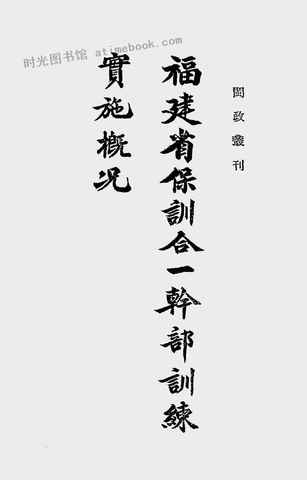 时光图书馆 atimebook.com
閩政叢刊
福建省保訓合一幹部訓練
實施概况